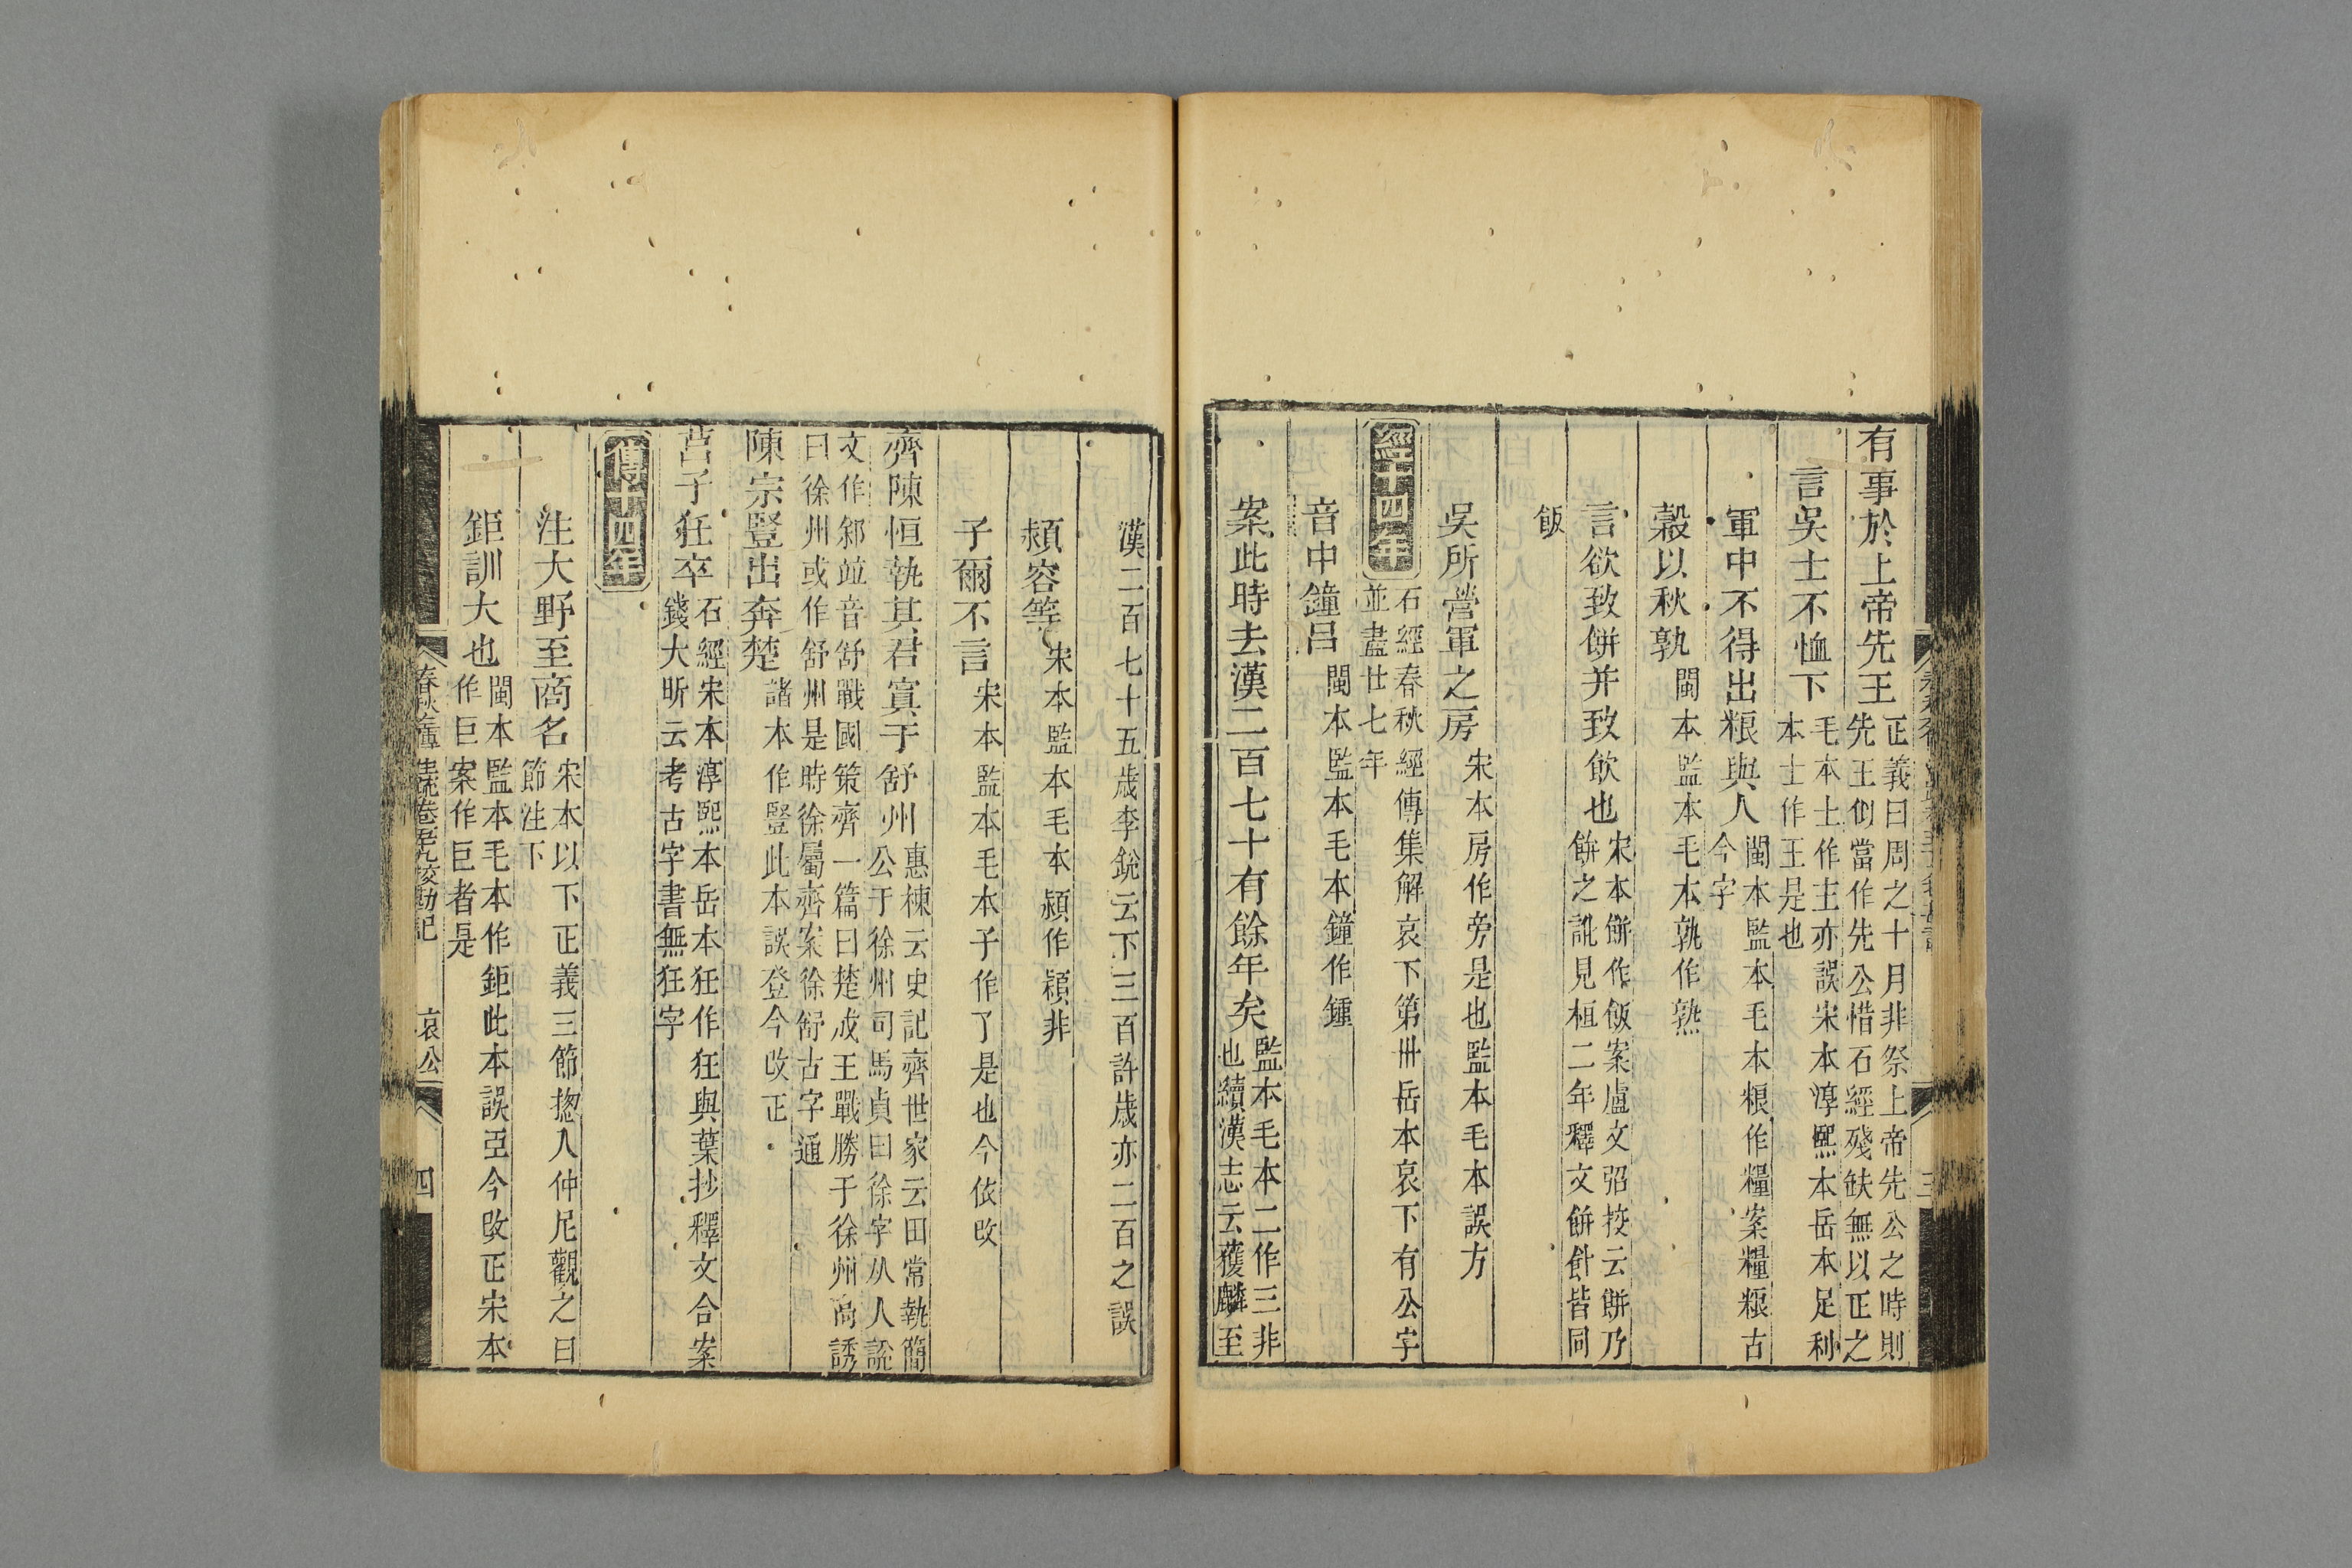 有事於上帝先王
正義曰周之十月非祭上帝先公之時則
先王似當作先公惜石經殘缺無以正之
言吳士不恤下
毛本士作主亦誤宋本淳熙本岳本足利
本士作王是也
軍中不得出粮與人
閩本監本毛本粮作糧案糧粮古
今字
穀以秋孰
閩本監本毛本孰作熟
言欲致餅并致飲也
宋本餅作飯案盧文弨挍云餅乃
餅之訛見桓二年釋文餅飰皆同
飯
吳所營軍之房
宋本房作旁是也監本毛本誤方
經十四年
石經春秋經傳集解哀下第卅岳本哀下有公字
並盡廿七年
音中鐘呂
閩本監本毛本鐘作鍾
案此時去漢二百七十有餘年矣
監本毛本二作三非
也續漢志云獲麟至
漢二百七十五歲李銳云下三百許歲亦二百之誤
頴容等
宋本監本毛本頴作潁非
子爾不言
宋本監本毛本子作了是也今依改
齊陳恒執其君寘于舒州
惠棟云史記齊世家云田常執簡
公于徐州司馬貞曰徐字从人說
文作䣄竝音舒戰國策齊一篇曰楚威王戰勝于徐州高誘
曰徐州或作舒州是時徐屬齊案徐舒古字通
陳宗豎出奔楚
諸本作豎此本誤登今改正
莒子狂卒
石經宋本淳熙本岳本狂作狂與葉抄釋文合案
錢大昕云考古字書無狂字
傳十四年
注大野至商名
宋本以下正義三節揔入仲尼觀之曰
節注下
鉅訓大也
閩本監本毛本作鉅此本誤亞今改正宋本
作巨案作巨者是
哀公
四